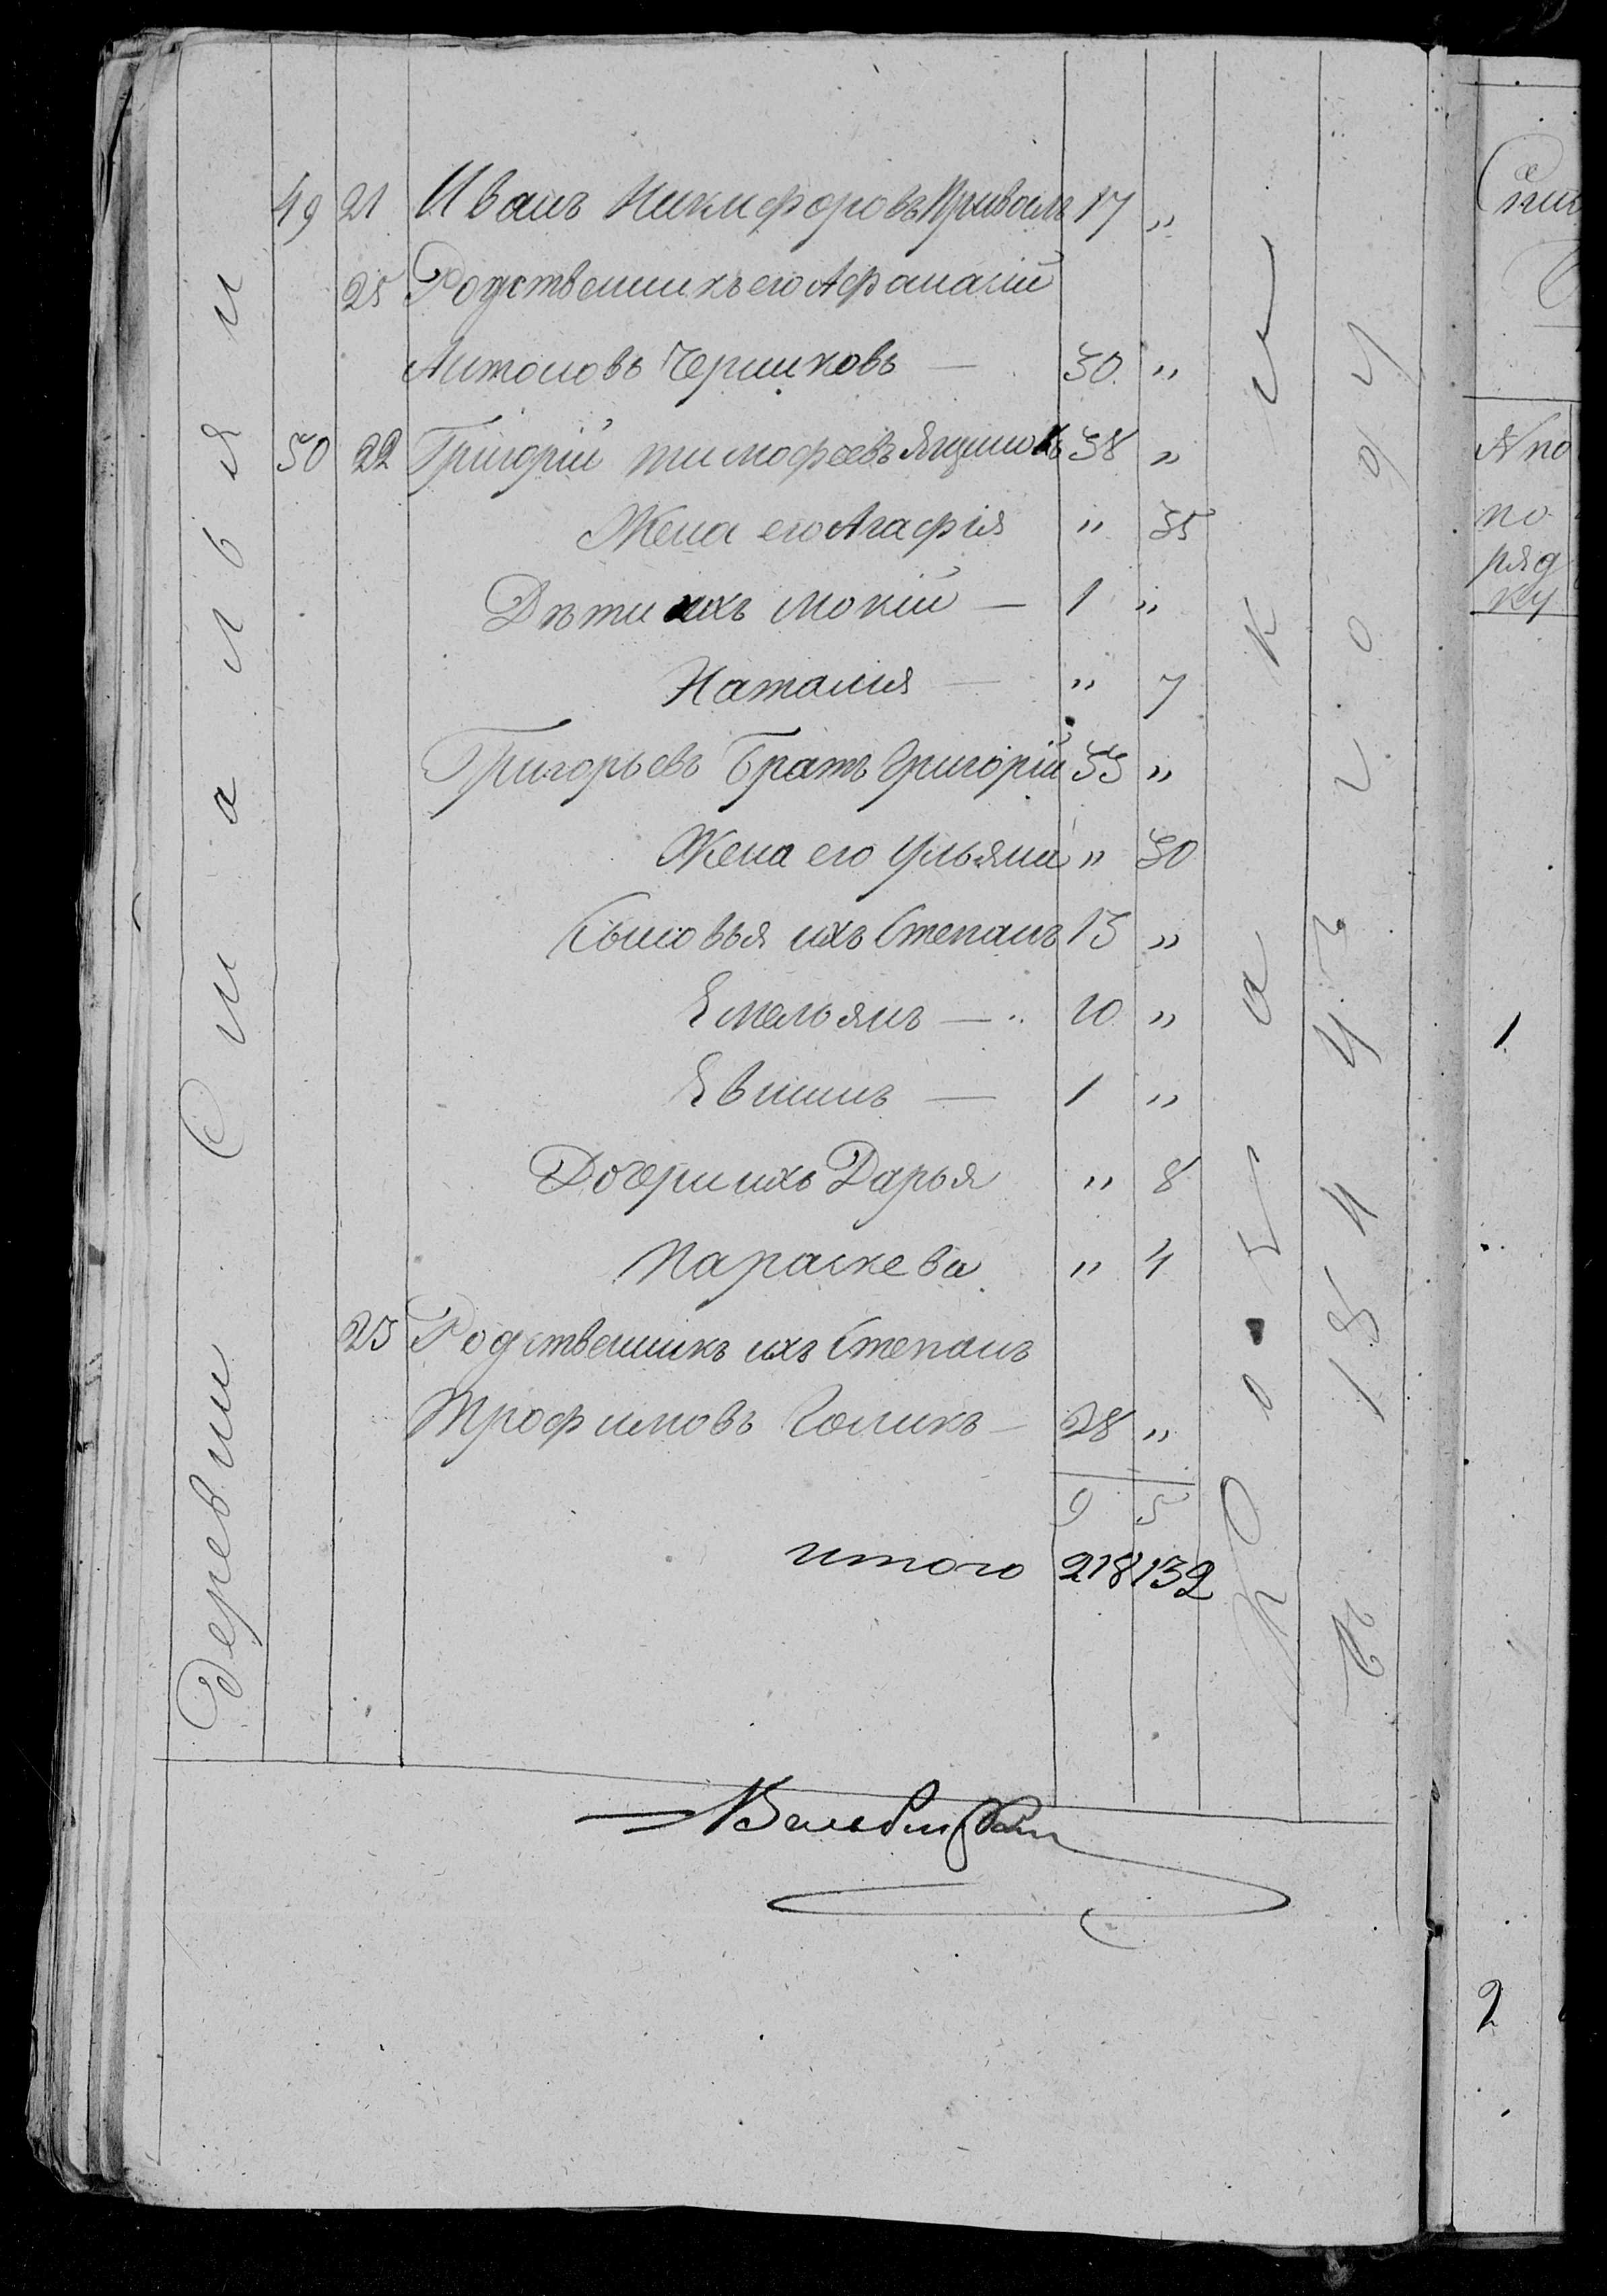 49 21 Иванъ Никифоровъ Приваль 17 "
25 Родственникъ его Афанасій
Антоновъ Черниховъ — 30 "
50 22 Григорій Тимофеевъ Яцыновъ 38 "
Жена его Агафія " 35
Дѣти ихъ Мокій — 1 "
Наталия — " 7
Григорьевъ Братъ Григорій 33 "
Жена его Ульяна " 30
Сыновья ихъ Степанъ 13 "
Емельянъ — 10 "
Евтихъ — 1 "
Дочери ихъ Дарья " 8
Параскева " 4
23 Родственникъ ихъ Степанъ
Трофимовъ Голикъ — 28 "
9 5
итого 218 132
Деревни Синалья
Въ 1844 году
№ по
по
ряд
ку
1
2